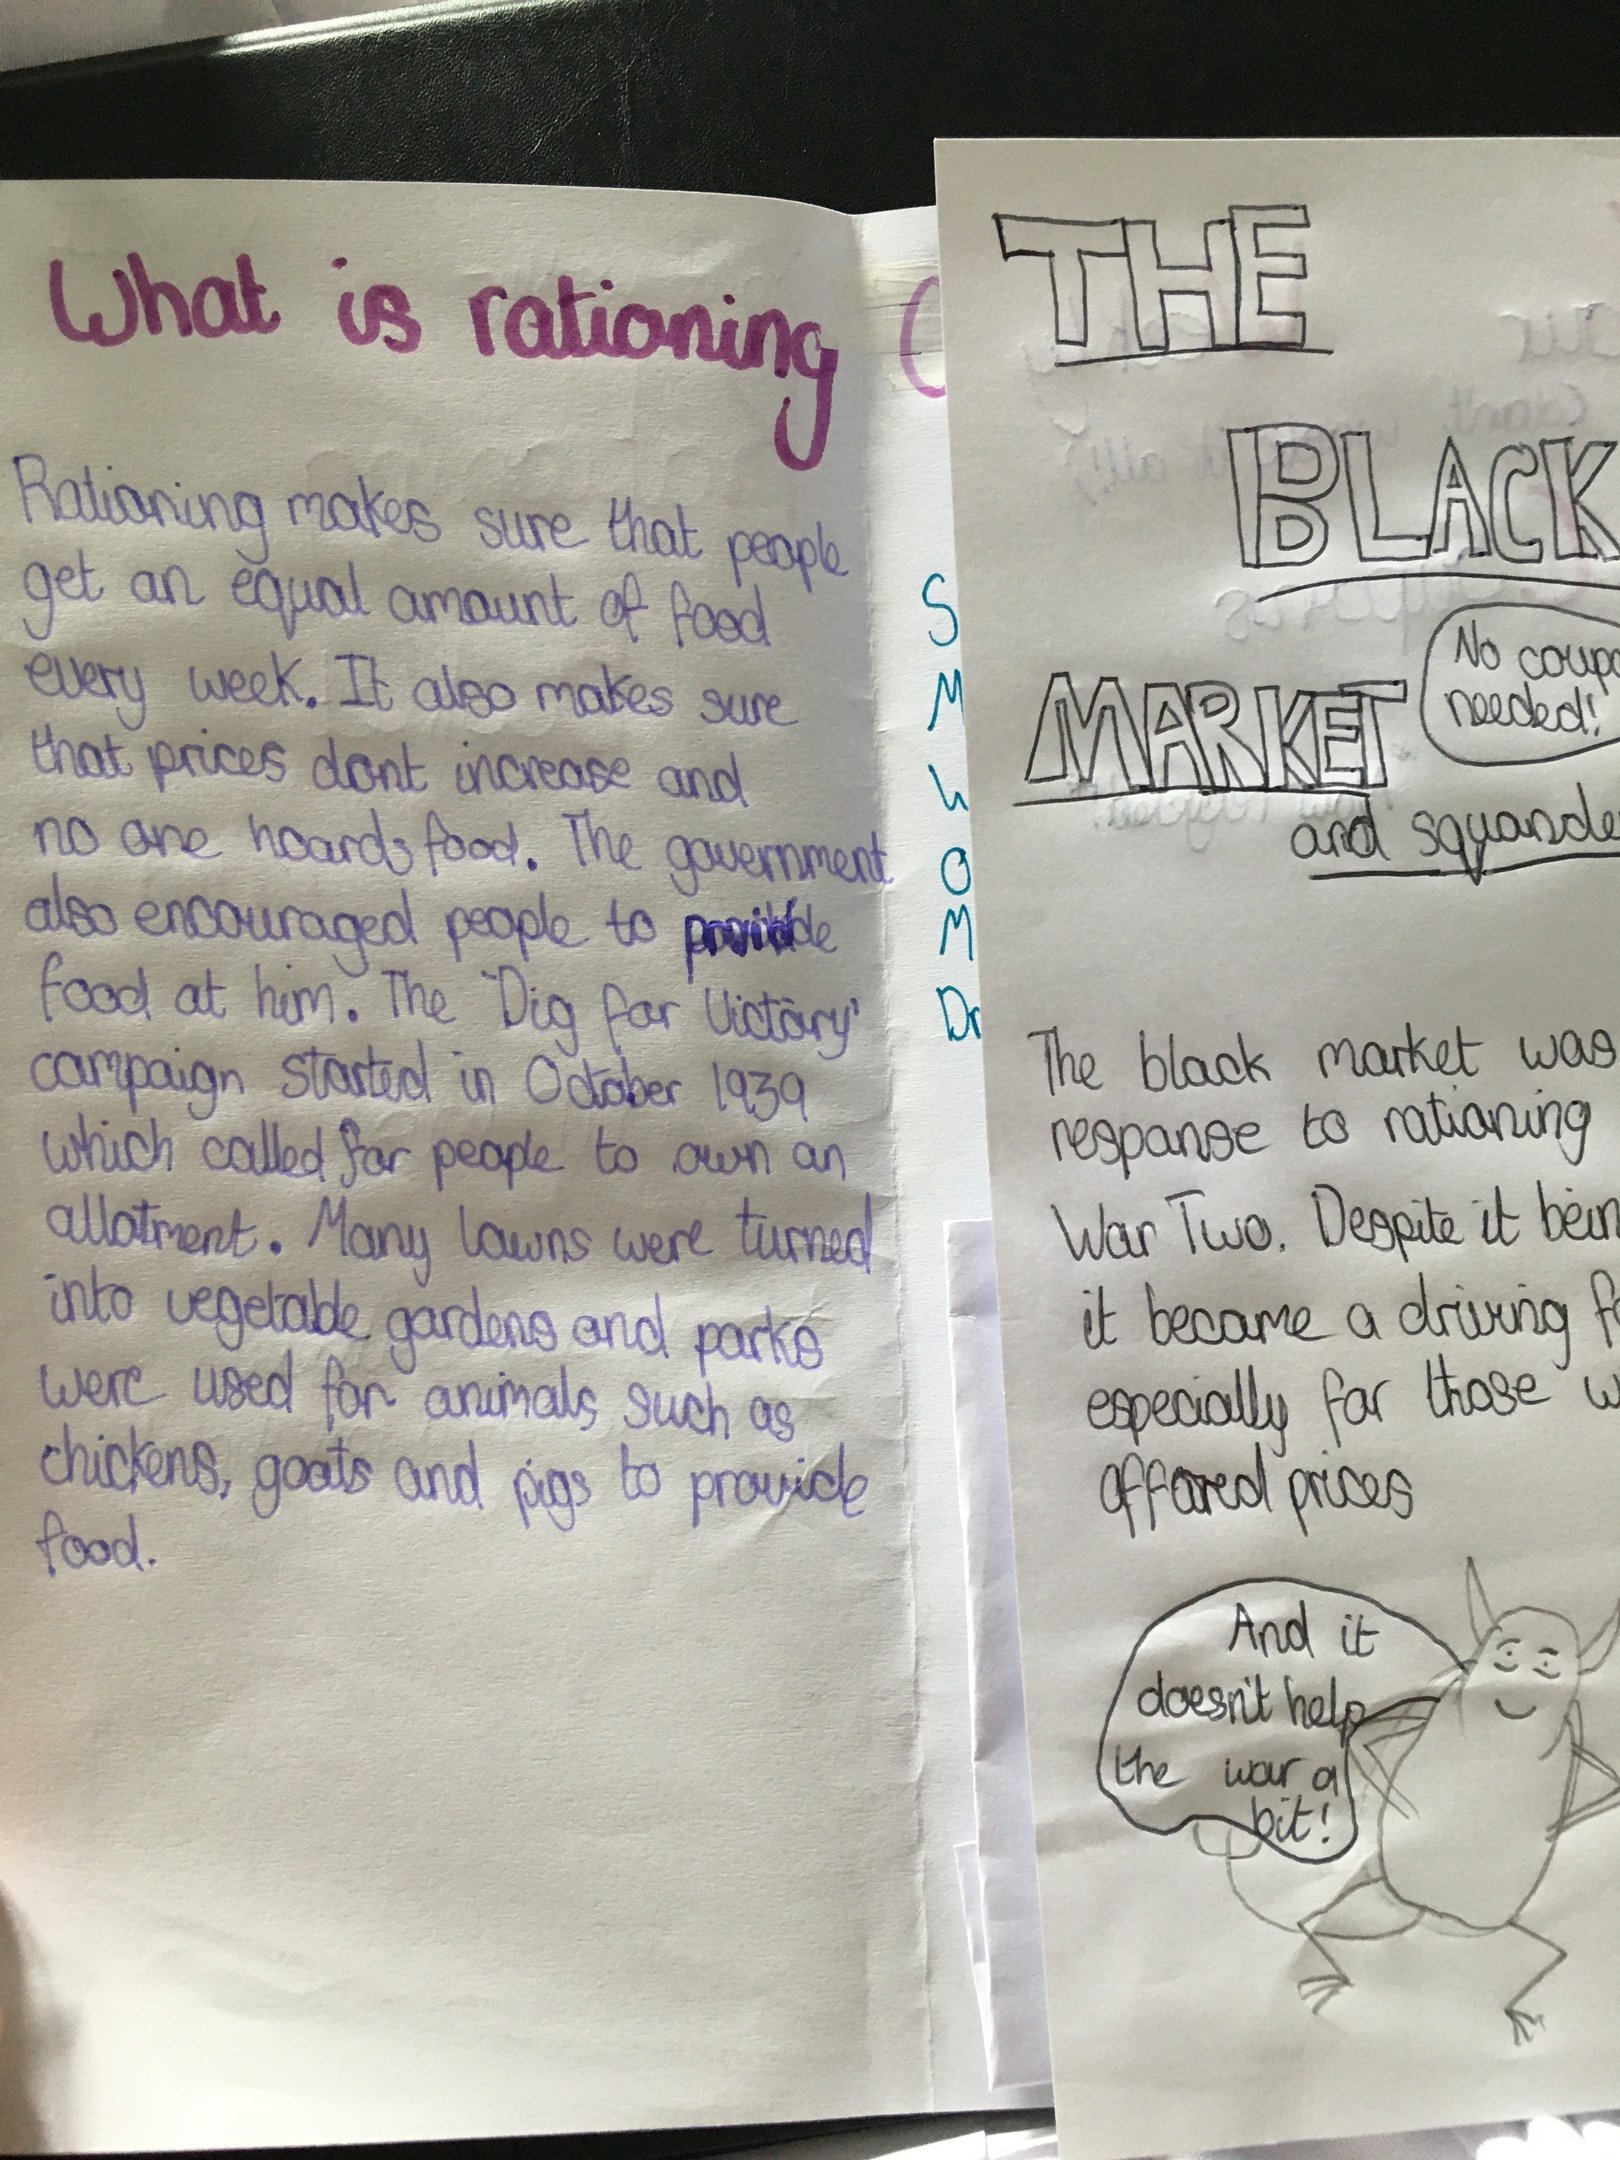 What is rationing
Rationing makes sure that people
get an equal amount of food
every week. It also makes sure
that prices dont increase and
no one hoards food. The government
also encouraged people to provide
food at him. The 'Dig for Victory'
campaign started in October 1939
which called for people to own an
allotment. Many lawns were turned
into vegetable gardens and parks
were used for animals such as
chickens, goats and pigs to provide
food.
S
M
L
O
M
Dr
THE
BLACK
MARKET
No coupo
needed!
and squande
The black market was
response to rationing
War Two. Despite it bein
it became a driving fo
especially for those w
offared prices
And it
doesn't help
the war a
bit!